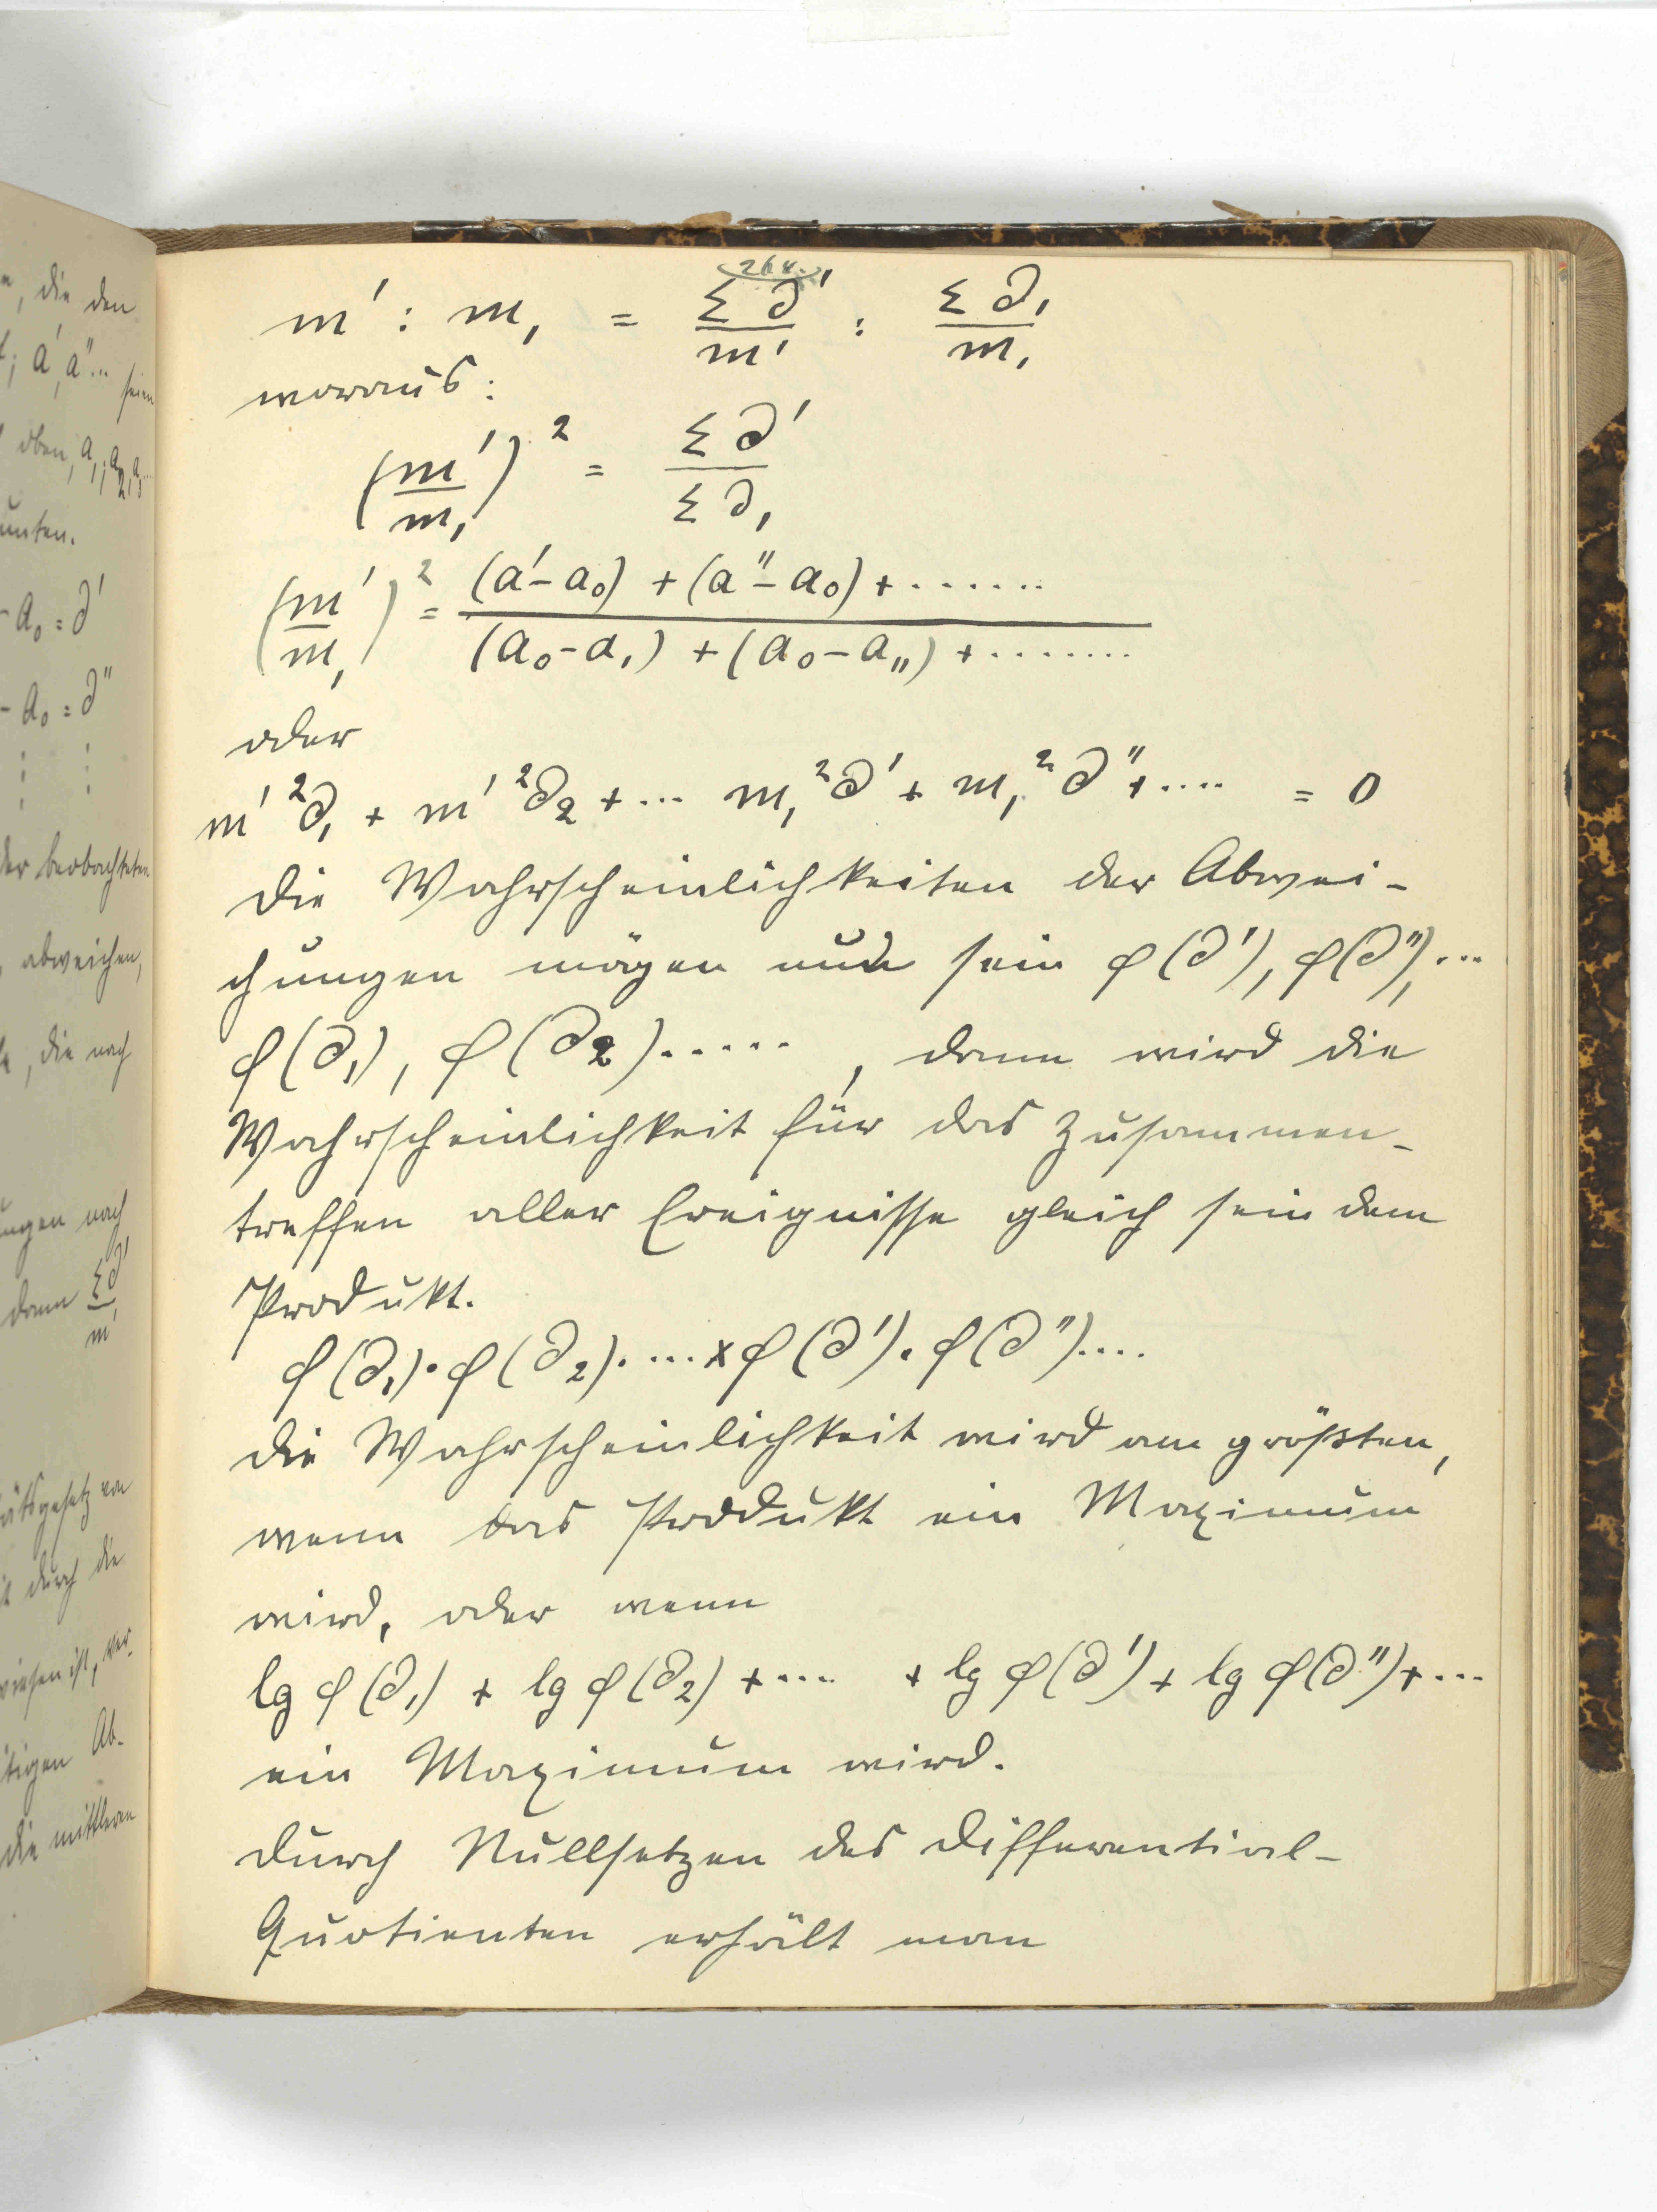 264.
m' : m, = Σ∂'/m' : Σ∂,/m,
woraus:
(m'/m,)² = Σ∂'/Σ∂,
(m'/m,)² = (a'-a₀) + (a''-a₀) + ....... / (a₀-a,) + (a₀-a,,) + ........
oder
m'²∂, + m'²∂₂ + ... m,²∂' + m,²∂'' + .... = 0
Die Wahrscheinlichkeiten der Abwei-
chungen mögen nun sein φ(∂'), φ(∂''), ...
φ(∂₁), φ(∂₂)....., dann wird die
Wahrscheinlichkeit für das Zusammen-
treffen aller Ereignisse gleich sein dem
Produkt.
φ(∂₁)·φ(∂₂)· ... x φ(∂')·φ(∂'')....
Die Wahrscheinlichkeit wird am größten,
wenn das Produkt ein Maximum
wird, oder wenn
lg φ(∂₁) + lg φ(∂₂) + .... + lg φ(∂') + lg φ(∂'') + ...
ein Maximum wird.
Durch Nullsetzen des Differential-
Quotienten erhält man
, die den
; a', a''... seien
oben, a₁, a₂, a₃...
unten.
- a₀ = ∂'
- a₀ = ∂''
der beobachteten
abweichen,
, die nach
ungen nach
dann Σ∂'/m'
durch die
wiesen ist, wer-
tigen Ab-
die mittleren